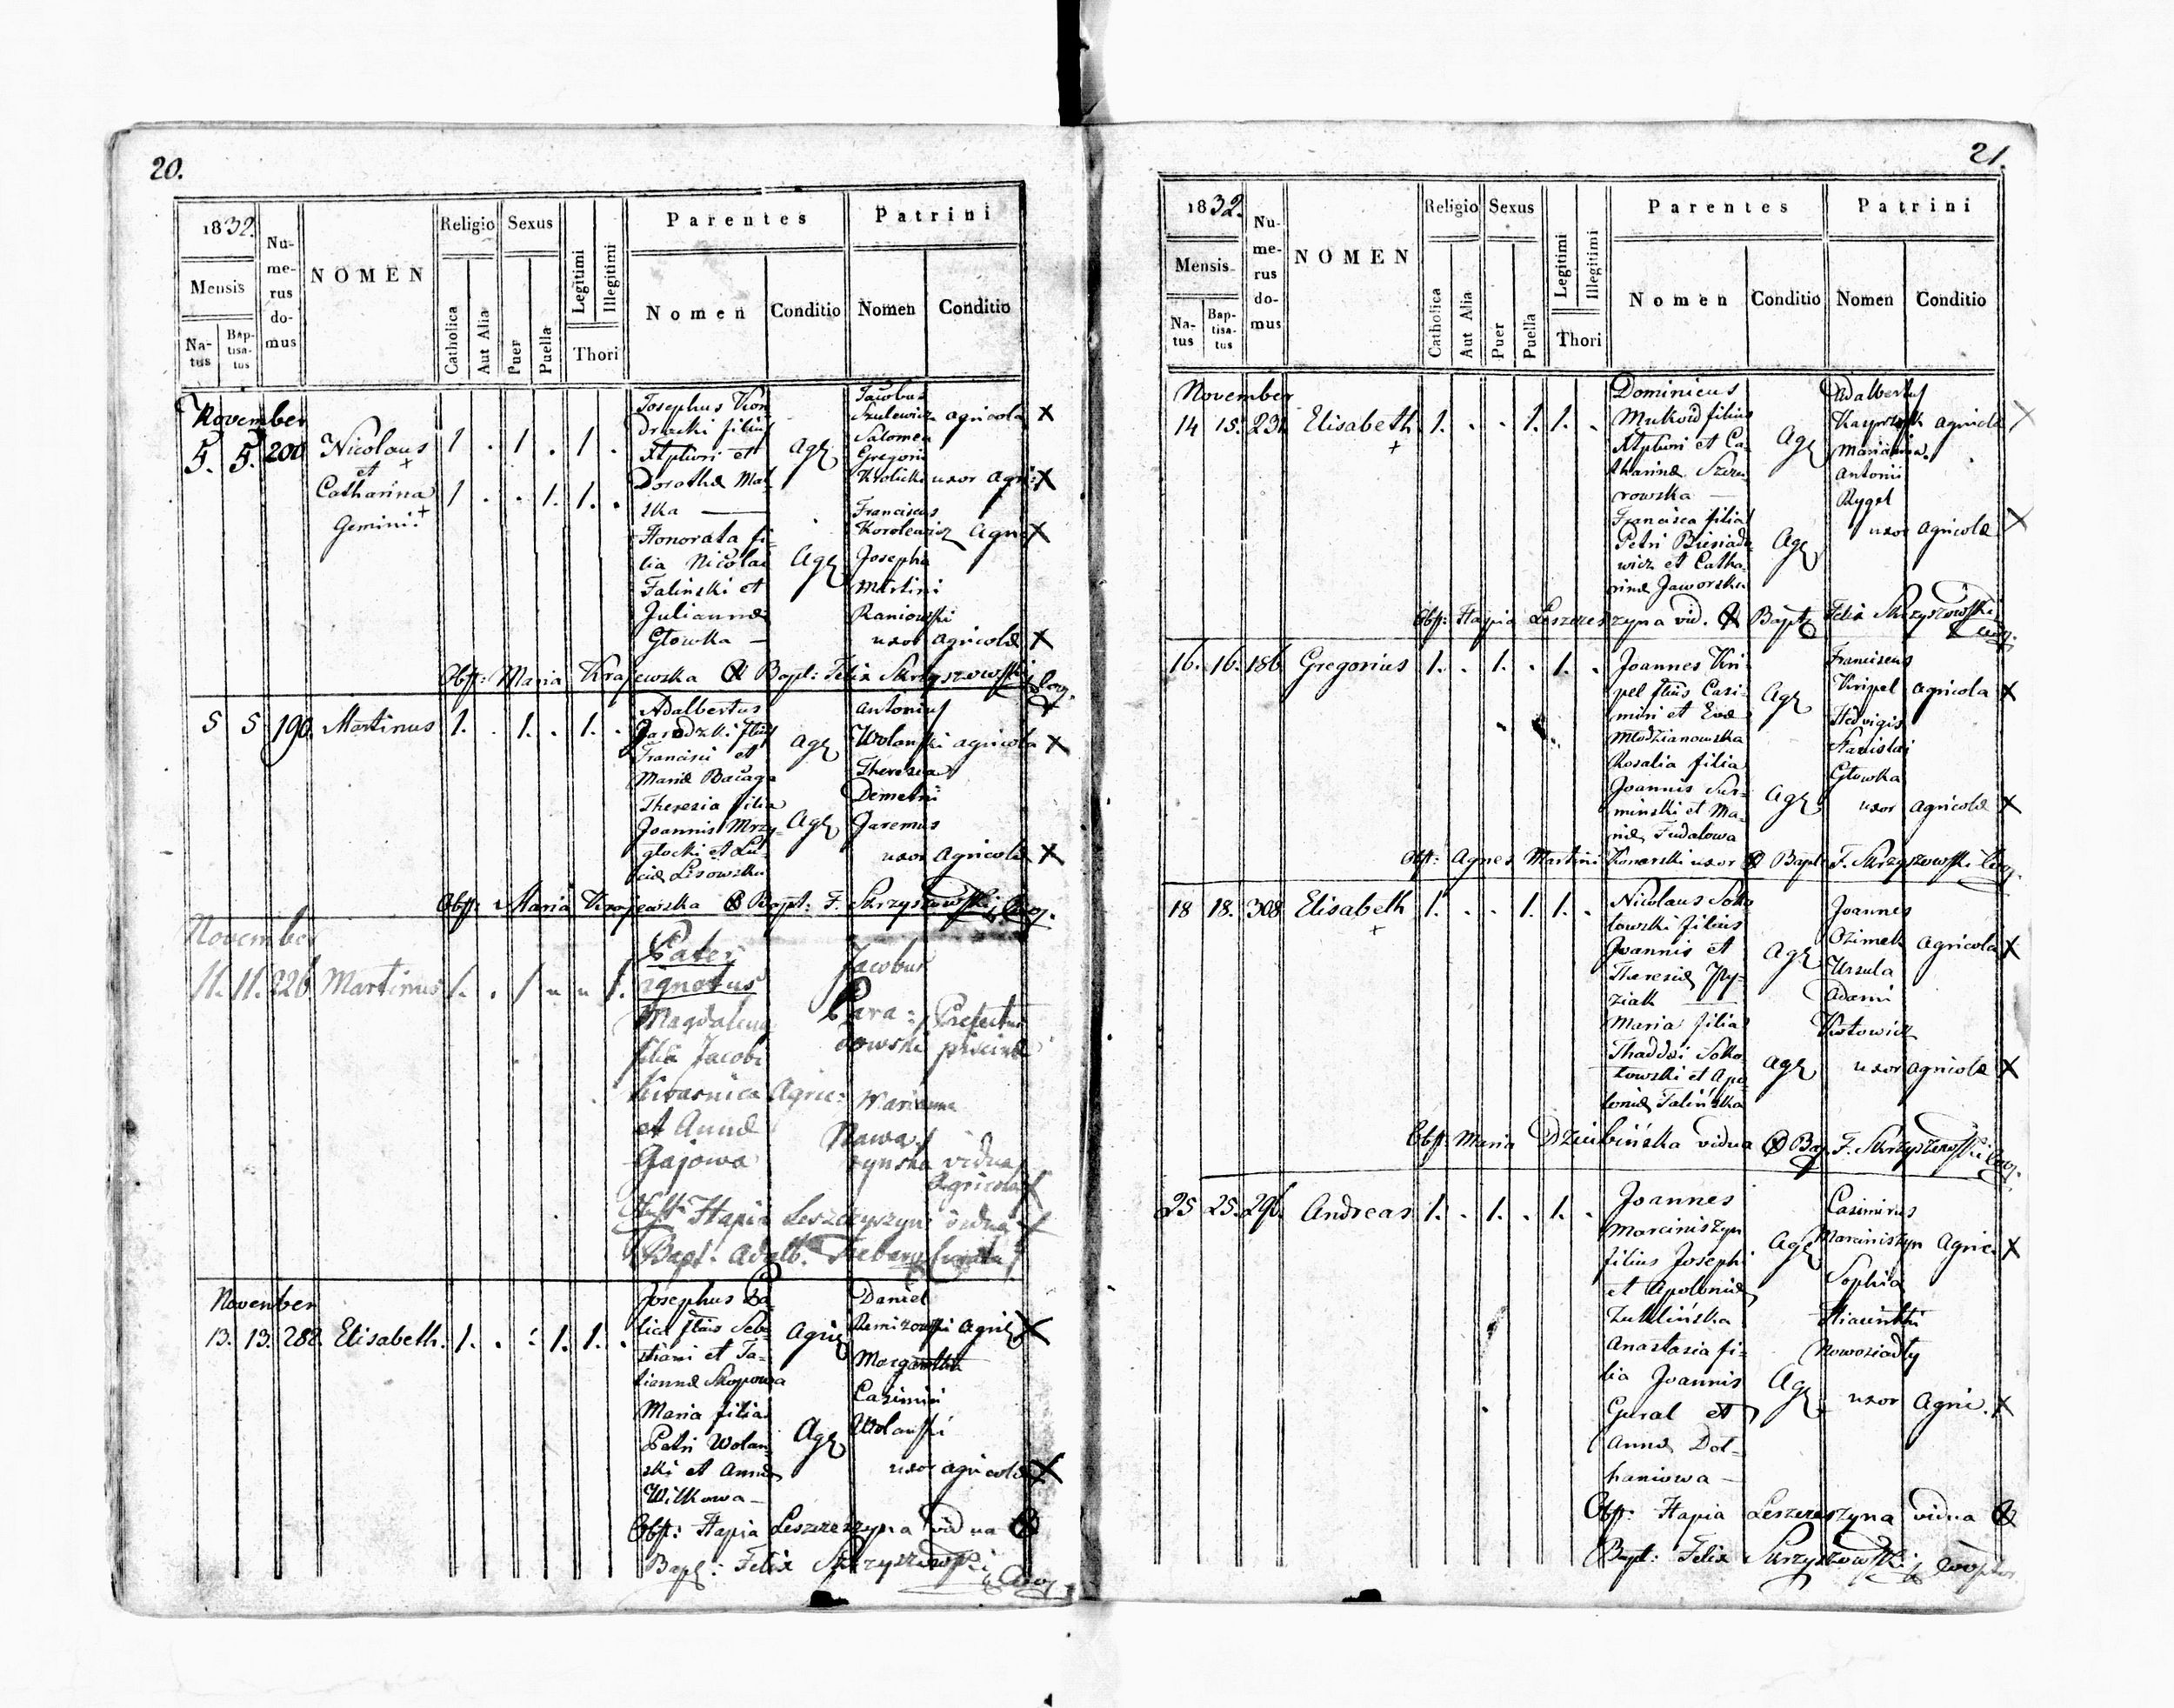 20.
1832.
Mensis
Na-
tus
Bap-
tisa-
tus
Nu-
me-
rus
do-
mus
NOMEN
Religio
Catholica
Aut Alia
Sexus
Puer
Puella
Legitimi
Illegitimi
Thori
Parentes
Nomen
Conditio
Patrini
Nomen
Conditio
November
5. 5. 200 Nicolaus 1 . 1 . 1 .
et
Catharina 1 . . 1. 1. .
Gemini.
Josephus Kon
dracki filius
et
Dorothæ Mal
ska —
Agr
Honorata fi-
lia Nicolai
Falinski et
Juliannæ
Głowka —
Agr
Jacobus
Szulewicz agricola X
Salomea
Gregorii
Krolicki uxor Agri X
Franciscus
Korolewicz Agri X
Josepha
Martini
Raniowski
uxor agricolæ X
Obst: Maria Krajewska X Bapt: Felix Skrzyszowski Coop.
5 5 190. Martinus 1. . 1. . 1. .
Adalbertus
filius
Francisci et
Mariæ
Agr
Theresia filia
Joannis Mrzy-
głocki et Lu-
ciæ Lisowska
Agr
Antonius
Wolanski agricola X
Theresia
Demetrii
Jaremus
uxor agricolæ X
Obst: Maria Krajewska X Bapt: F. Skrzyszowski Coop.
November
11. 11. 226 Martinus 1. . 1 " " 1.
Pater
ignotus
Magdalena
filia Jacobi
Kwasnica Agric:
et Annæ
Gajowa
Jacobus
Para:
dowski piscinæ
Marianna
Nawa
rynska vidua
Agricolæ
Obst: Hapia Leszczyszyn vidua
Bapt: Adalb.
November
13. 13. 282. Elisabeth. 1. . : 1. 1. .
Josephus Ba
lica filius Seb-
stiani et Ta-
tiannæ Skopowa
Agric
Maria filia
Petri Wolan
ski et Annæ
Wilkowa —
Agr
Daniel
Remizowski Agric X
Margaretha
Casimiri
Wolanski
uxor agricolæ X
Obst: Hapia Leszczeszyna vidua X
Bapt: Felix Skrzyszowski Coop.
21.
1832.
Mensis
Na-
tus
Bap-
tisa-
tus
Nu-
me-
rus
do-
mus
NOMEN
Religio
Catholica
Aut Alia
Sexus
Puer
Puella
Legitimi
Illegitimi
Thori
Parentes
Nomen
Conditio
Patrini
Nomen
Conditio
November
14 15. 231. Elisabeth 1. . . 1. 1. .
Dominicus
Mukoid filius
et Ca-
tharinæ Szeze-
rowska —
Agr
Francisca filia
Petri Biesiado
wicz et Catha-
rinæ Jaworska
Agr
Adalbertus
Kasprzyk agricola X
Marianna.
Antonii
Rygel
uxor agricolæ X
Obst: Hapia Leszczeszyna vid. X Bapt. Felix Skrzyszowski
Coop.
16. 16. 186. Gregorius 1. . 1. . 1. .
Joannes Kri
pel filius Casi-
miri et Evæ
Młodzianowska
Agr
Rosalia filia
Joannis Sur-
minski et Ma-
riæ Fudalowa
Agr
Franciscus
Kripel agricola X
Hedvigis
Stanislai
Głowka
uxor agricolæ X
Obst: Agnes Martini Konarski uxor X Bapt F. Skrzyszowski Coop.
18 18. 308 Elisabeth 1. . . 1. 1. .
Nicolaus Soko
łowski filius
Joannis et
Theresiæ Py-
ziak —
Agr
Maria filia
Thaddæi Soko
łowski et Apo-
loniæ Falińska
Agr
Joannes
Ozimek Agricola X
Ursula
Adami
Kotowicz
uxor agricolæ X
Obst: Maria Dziubińska vidua X Bap. F. Skrzyszowski Coop.
25 25. 296. Andreas 1. . 1. . 1. .
Joannes
Marciniszyn
filius Josephi
et Apoloniæ
Zuklińska
Agr
Anastasia fi-
lia Joannis
Gural et
Annæ Dol-
haniowa —
Agr
Casimirus
Marciniszyn Agric. X
Sophia
Hiacinthi
Nowosiadły
uxor Agric. X
Obst: Hapia Leszczeszyna vidua X
Bapt: Felix Skrzyszowski Cooptor